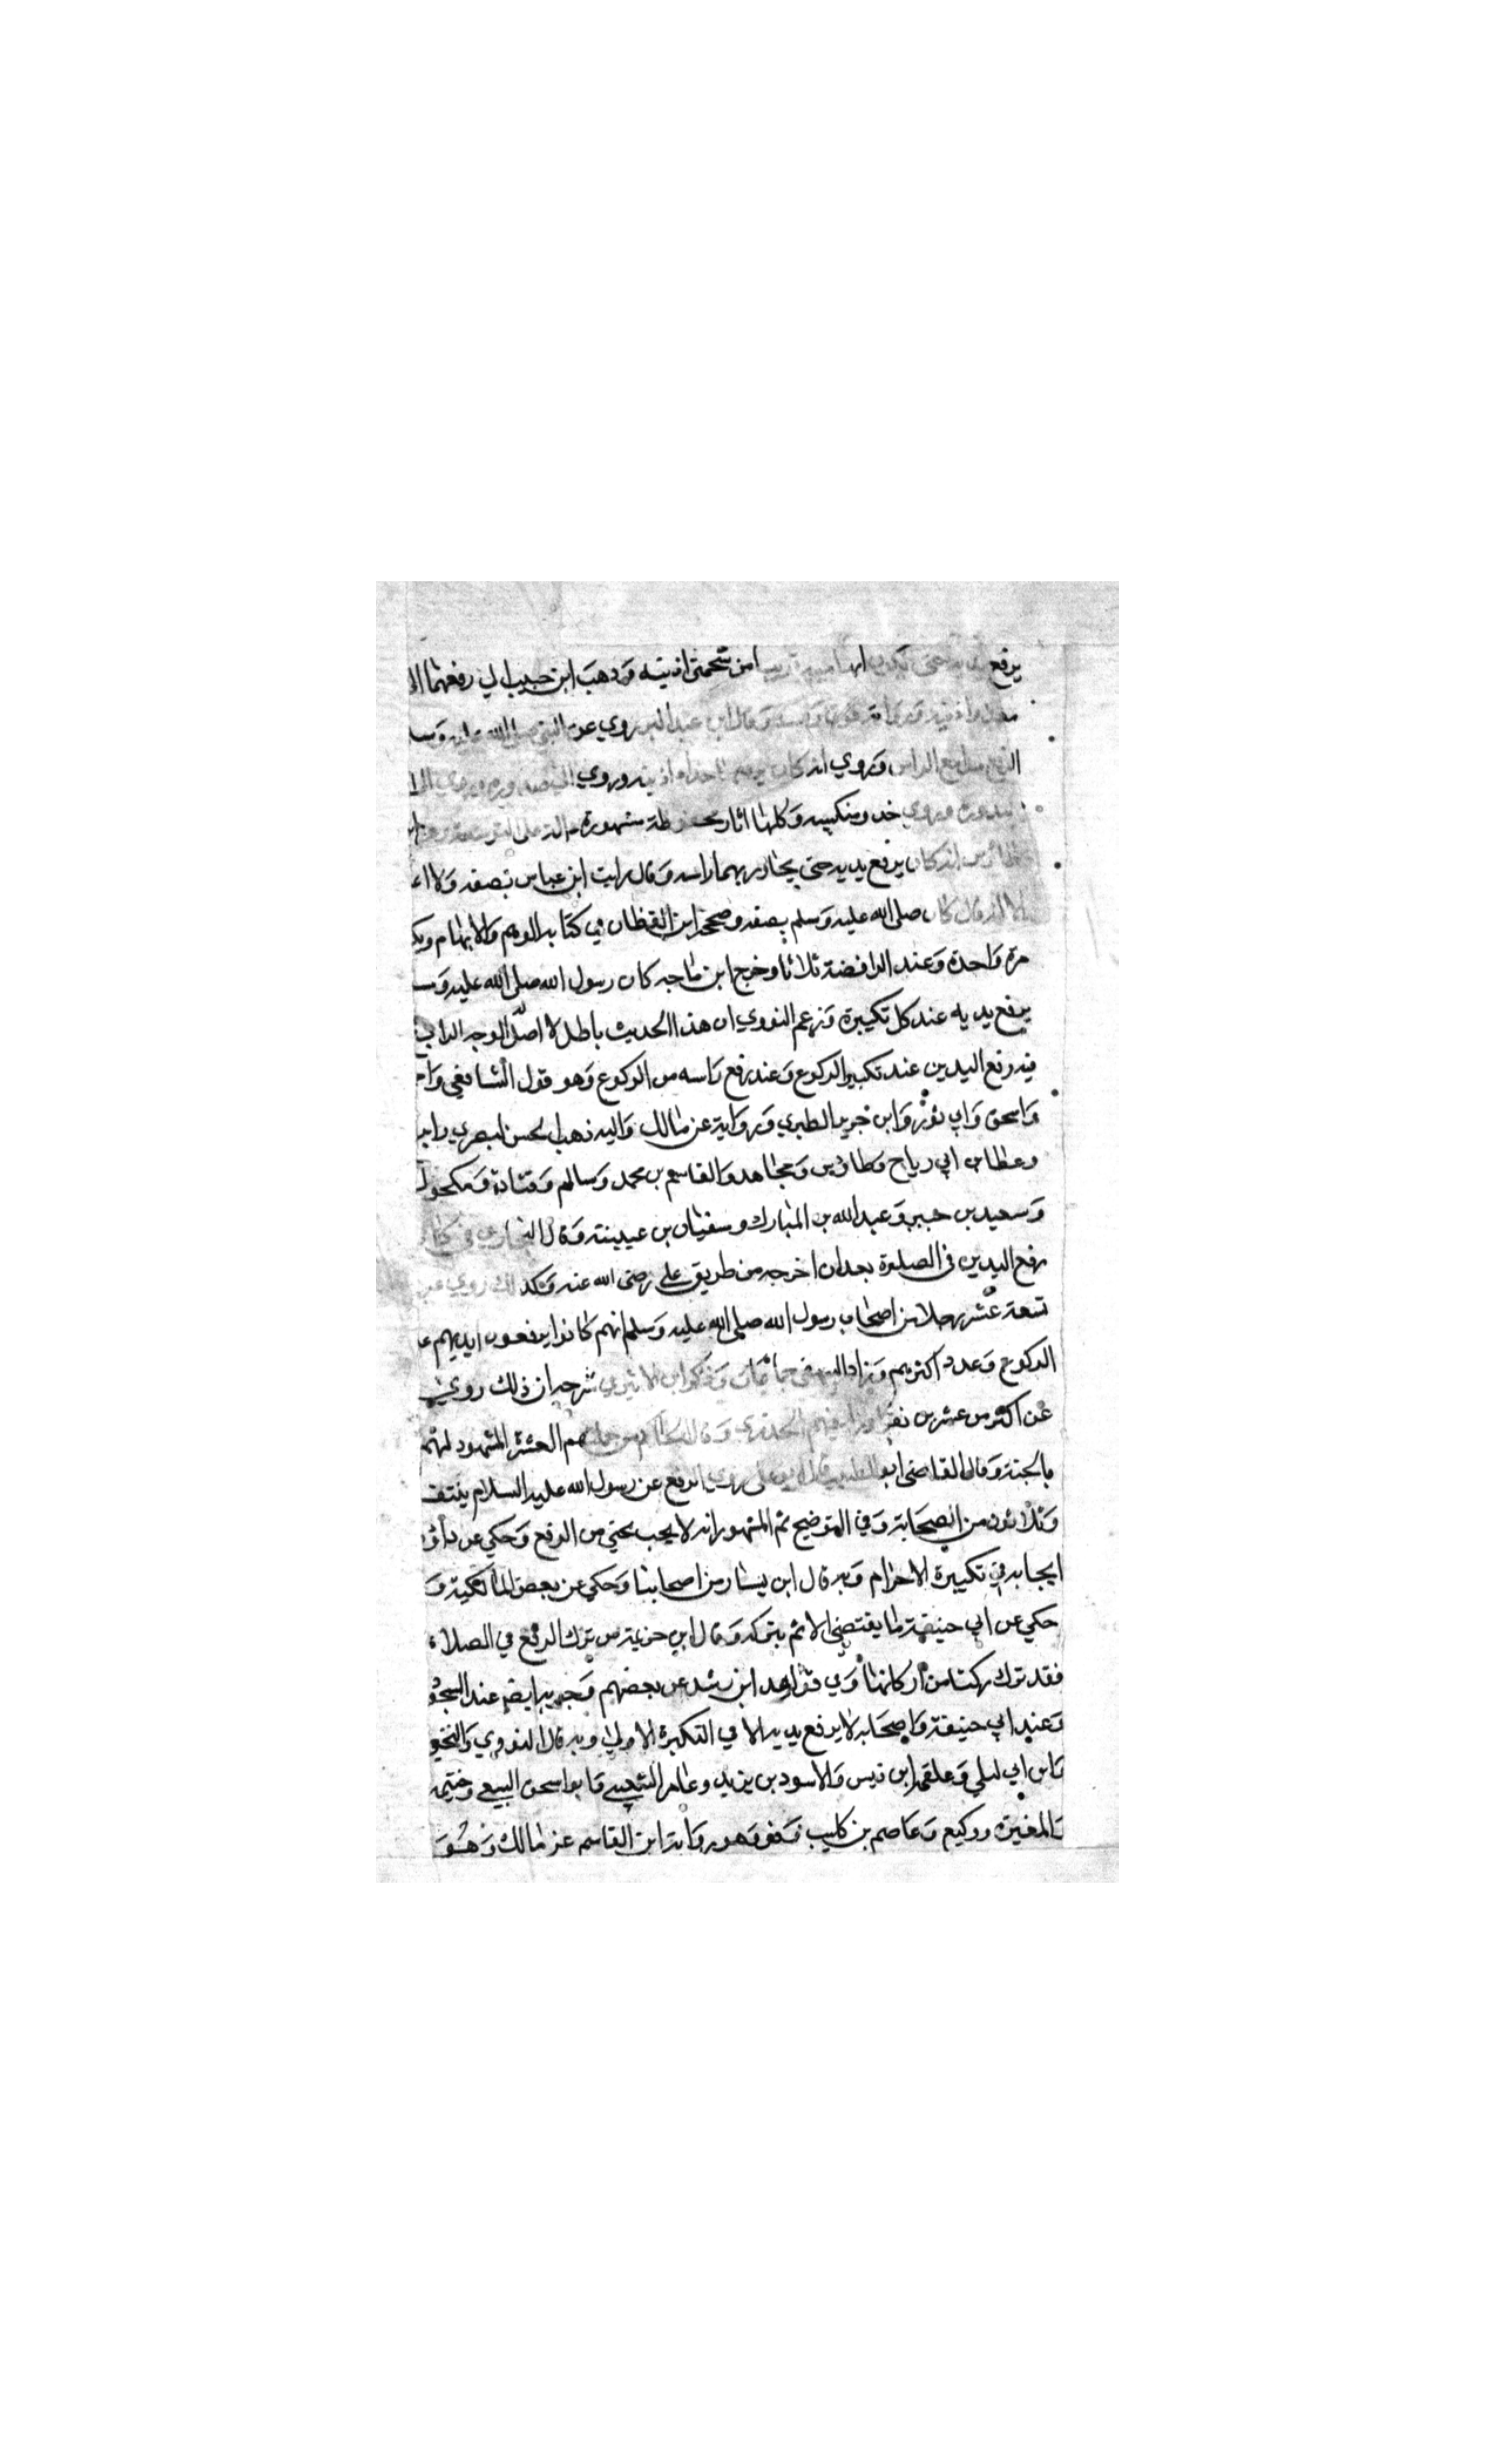 يرفع حتى امن شحمتي اذنيه وذهب ابن حبيب الي رفعهما الي
وقال ابن عبد البر روي عن النبي صلى الله عليه وسلـ
الراس وروي انه كان اذنيه وروي
وروي حذو منكبيه وكلها اثار مشهورة
انه كان يرفع يديه حتى يحاذي بهما راسه وقال رايت ابن عباس يصنعه ولا اعـ
انه قال كان صلى الله عليه وسلم يصنعه وصححه ابن القطان في كتابه الوهم والايهام
مرة واحدة وعند الرافضة ثلاثا وخرج ابن ماجه كان رسول الله صلى الله عليه وسـ
يرفع يديه عند كل تكبيرة وزعم النووي ان هذا الحديث باطل لا اصل الوجه الرابع
فيه رفع اليدين عند تكبير الركوع وعند رفع راسه من الركوع وهو قول الشافعي واحـ
واسحق وابي ثور وابن جرير الطبري ورواية عن مالك واليه ذهب الحسن البصري وابـ
وعطا بن ابي رياح وطاوس ومجاهد والقاسم بن محمد وسالم وقتادة ومكحول
وسعيد بن جبير وعبد الله بن المبارك وسفيان بن عيينة وقال البخاري في
رفع اليدين في الصلوة بعد ان اخرجه من طريق علي رضى الله عنه وكذلك روي عن
تسعة عشر رجلا من اصحاب رسول الله صلى الله عليه وسلم انهم كانوا يرفعون ايديهم عـ
الركوع وعدد اكثرهم وزاد البيهقي جماعات وذكر ابن الاثير في شرحه ان ذلك روي
عن اكثر من عشرين نفرا وزاد فيهم الخدري وقال الحاكم من جملتهم العشرة المشهود لهم
بالجنة وقال القاضي ابو الطيب قال ابو علي روي الرفع عن رسول الله عليه السلام نيف
وثلاثون من الصحابة وفي التوضيح ثم المشهور انه لا يجب شي من الرفع وحكي عن داود
ايجابه في تكبيرة الاحرام وبه قال ابن يسار من اصحابنا وحكي عن بعض المالكية و
حكي عن ابي حنيفة ما يقتضي الاثم بتركه وقال ابن خزيمة من ترك الرفع في الصلاة
فقد ترك ركنا من اركانها وفي قواعد ابن رشد عن بعضهم وجوبه ايضا عند السجود
وعند ابي حنيفة واصحابه لا يرفع يديه الا في التكبيرة الاولى وبه قال النووي والنخعي
وابن ابي ليلي وعلقمة ابن قيس والاسود بن يزيد وعامر الشعبي وابو اسحق السبيعي وخيثمة
والمغيرة ووكيع وعاصم بن كليب وزفر وهو رواية ابن القاسم عن مالك وهو